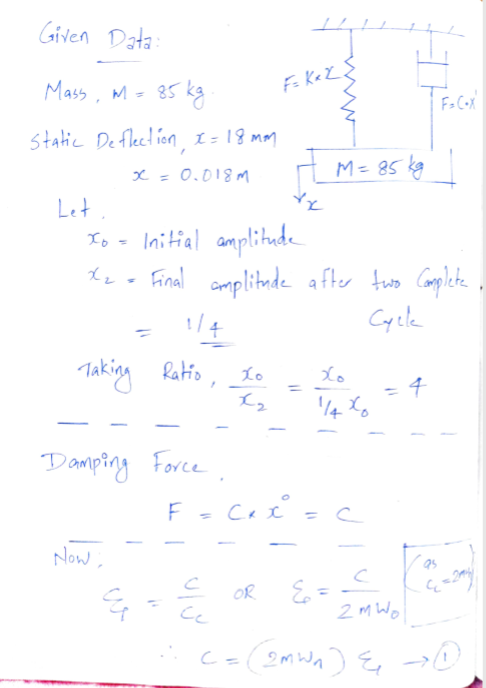 Given Data:
Mass, M = 85 kg.
Static Deflection, x = 18 mm
x = 0.018 m
F = K×x
F = C×ẋ
M = 85 kg
x
Let,
x₀ = Initial amplitude
x₂ = Final amplitude after two Complete
Cycle
= 1/4
Taking Ratio, x₀/x₂ = x₀/(1/4 x₀) = 4
Damping Force,
F = C × ẋ = C
Now,
ξ = C/Cc OR ξ = C/(2 m ω₀) [as Cc = 2mω]
∴ C = (2mωₙ) ξ → ①